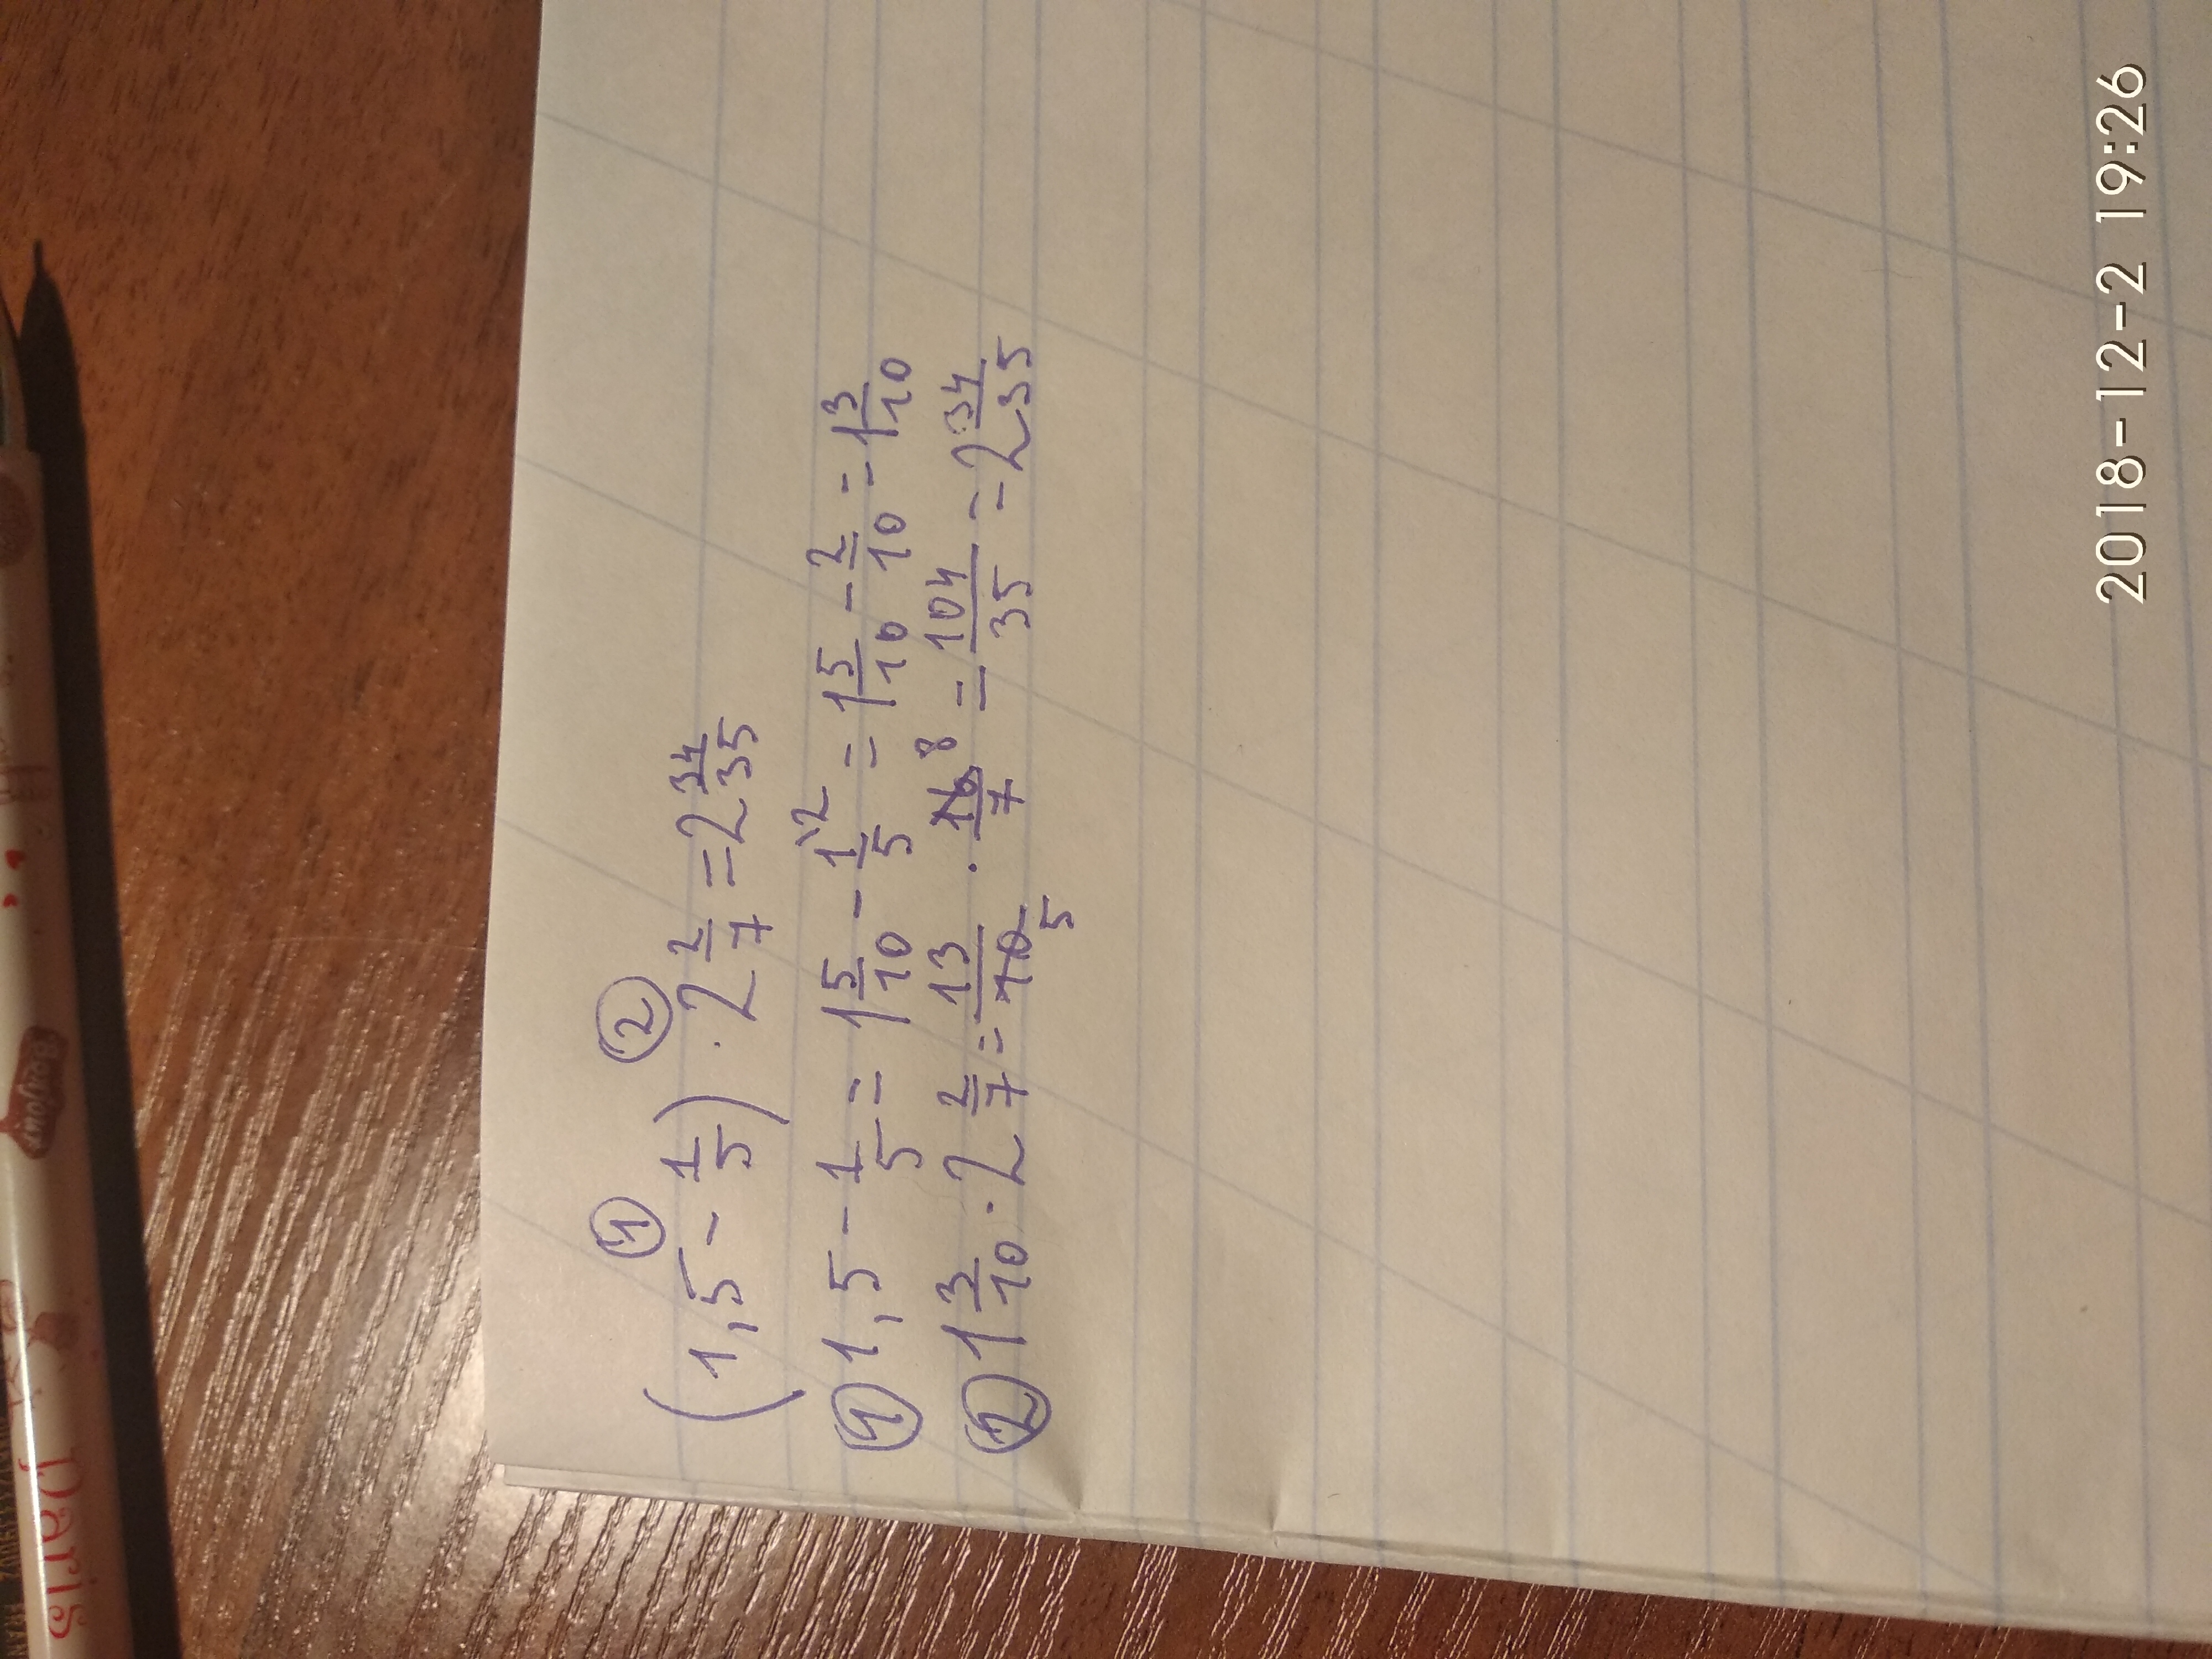 (1,5 - 1/5) · 2 2/7 = 2 34/35
① ②
① 1,5 - 1/5 = 1 5/10 - 1/5 \2 = 1 5/10 - 2/10 = 1 3/10
② 1 3/10 · 2 2/7 = 13/10 5 · 16/7 8 = 104/35 = 2 34/35
Paris
Bonjour
2018-12-2 19:26